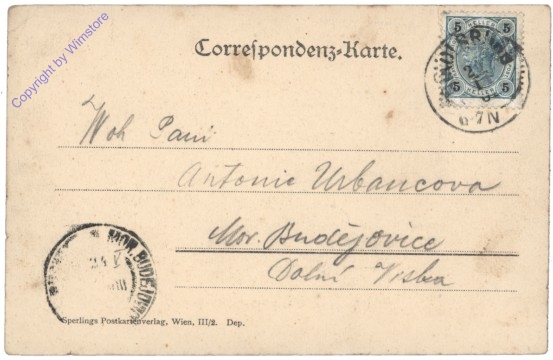 Copyright by Wimstore
Correspondenz-Karte.
5 5
HELLER
5 5
6-7N
Woh Pani
Antonie Urbancova
Mor. Budějovice
Dolní Veska
MOR. BUDĚJOV
24 V
Sperlings Postkartenverlag, Wien, III/2. Dep.